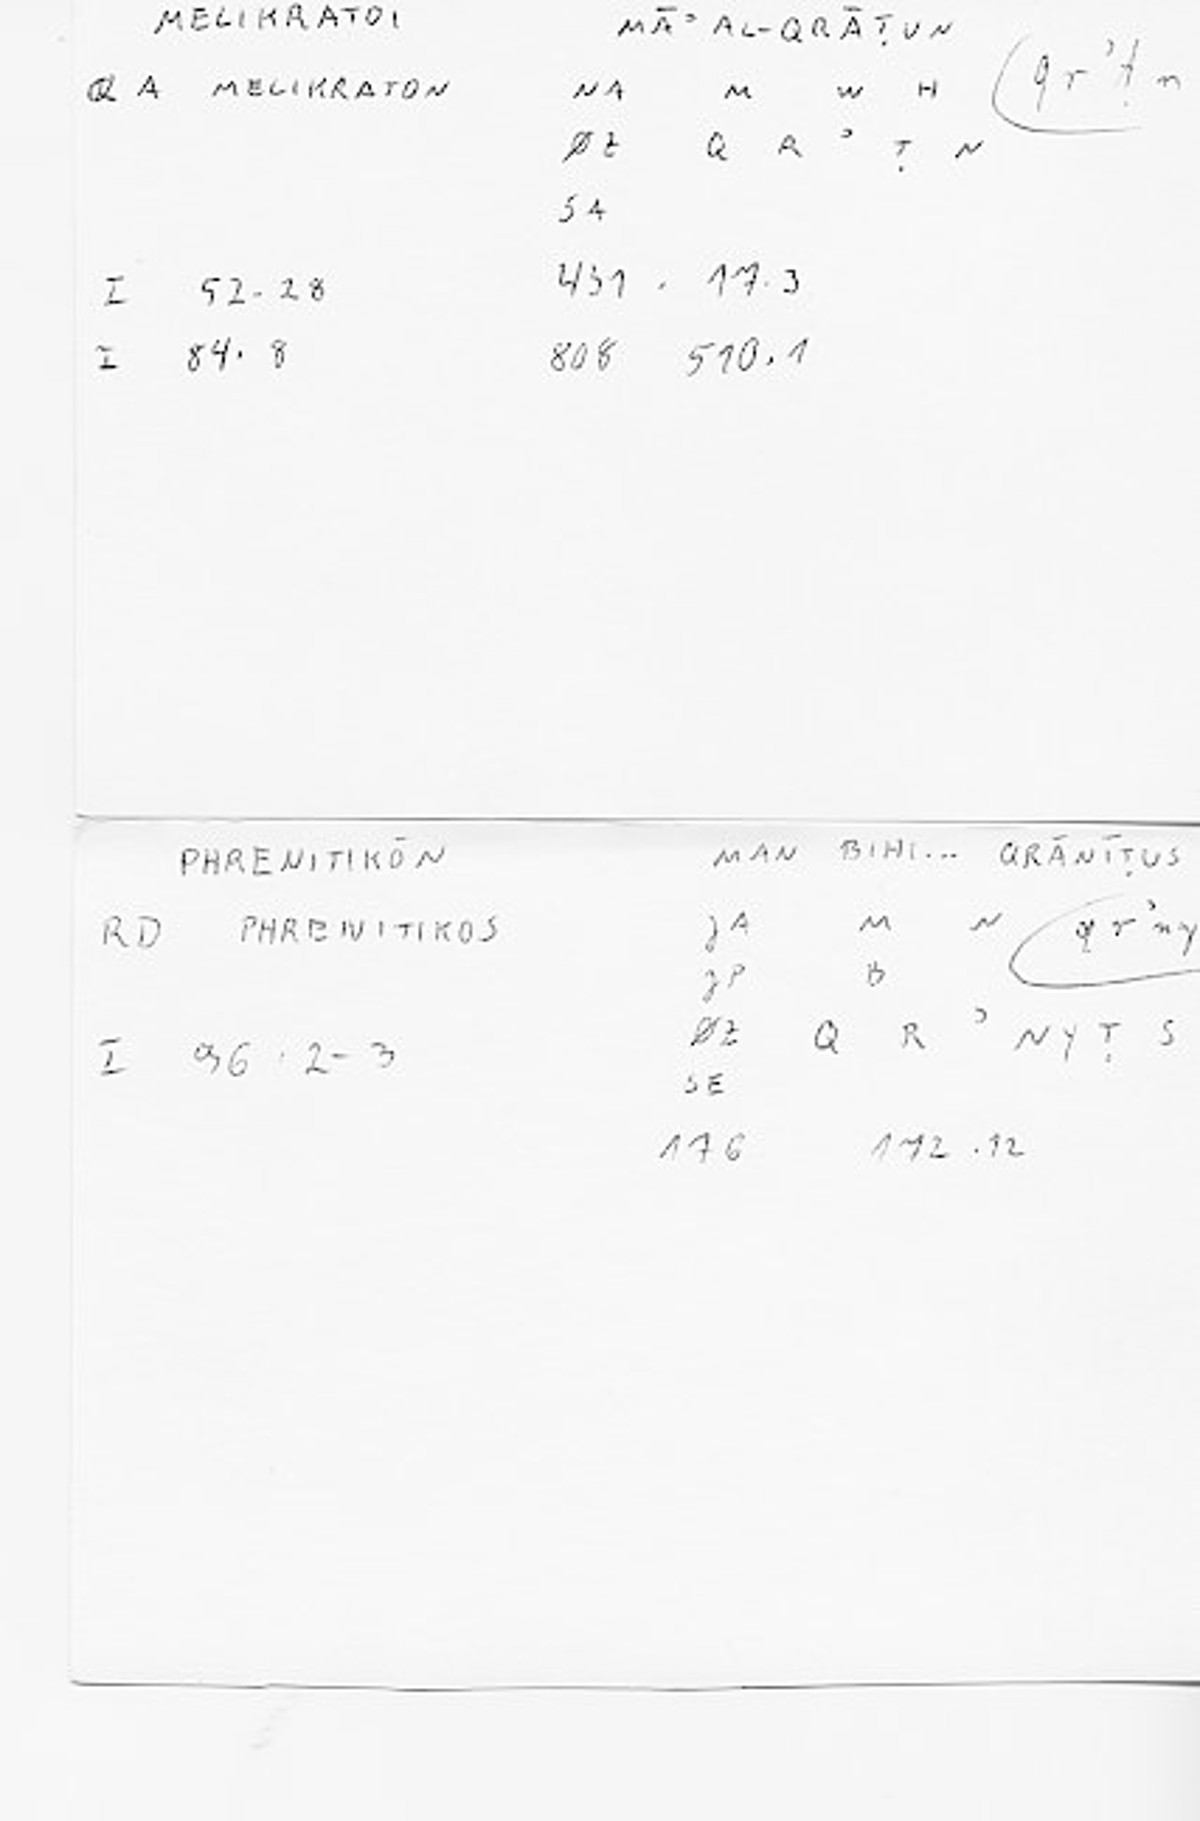 MELIKRATOI MĀʾ AL-QRĀṬUN
QA MELIKRATON NA M W H (qrʾṭn
ØZ Q R ʾ Ṭ N
SA
I 52.28 431 . 17.3
I 84.8 808 510.1
PHRENITIKŌN MAN BIHI... QRĀNĪṬUS
RD PHRENITIKOS JA M N (qrʾny
JP B
ØZ Q R ʾ NYṬ S
I 96.2-3
SE
176 172.12